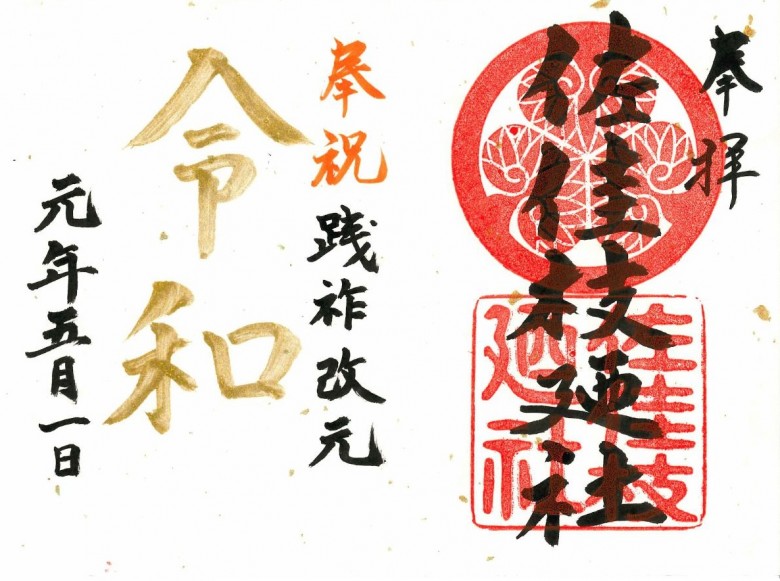 奉拝
佐佳枝廼社
佐佳枝
廼社
奉祝
践祚改元
令和
元年五月一日